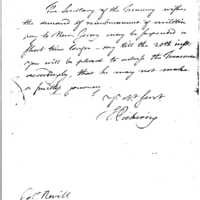 The Secretary of the Treasury wishes
the demand of reimbursement of militia
pay to New Jersey may be suspended a
short time longer - say till the 20th inst.
You will be pleased to advise the Treasurer
accordingly, that he may not make
a fruitless journey.
T Pickering